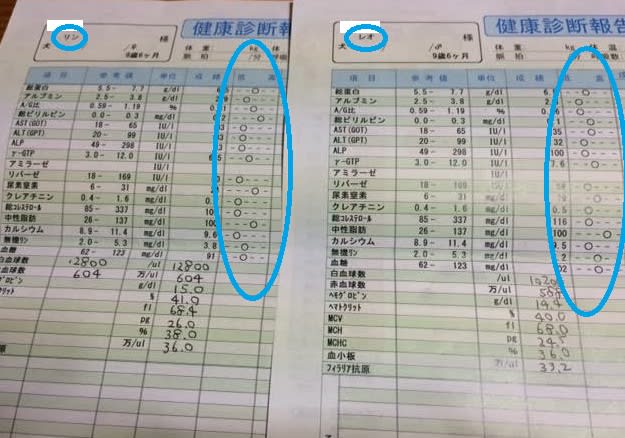 健康診断報
リン 様
犬 /♀ 9歳6ヶ月
体重: kg 体
脈拍: /分
項目 参考値 単位 成績 低 高
総蛋白 5.5 - 7.7 g/dl
アルブミン 2.5 - 3.8 g/dl
A/G比 0.59 - 1.19 %
総ビリルビン 0.0 - 0.3 mg/dl
AST(GOT) 18 - 65 IU/l
ALT(GPT) 20 - 99 IU/l
ALP 49 - 298 IU/l
γ-GTP 3.0 - 12.0 IU/l
アミラーゼ IU/l
リパーゼ 18 - 169 IU/l
尿素窒素 6 - 31 mg/dl
クレアチニン 0.4 - 1.6 mg/dl
総コレステロール 85 - 337 mg/dl
中性脂肪 26 - 137 mg/dl
カルシウム 8.9 - 11.4 mg/dl 9.6
無機リン 2.0 - 5.3 mg/dl 3.8
血糖 62 - 123 mg/dl 91
白血球数 12800 /ul 12800
血球数 604 万/ul 604
グロビン g/dl 15.0
クリット % 41.0
fl 68.4
pg 26.0
% 38.0
原 万/ul 36.0
健康診断報告
レオ 様
犬 /♂ 9歳6ヶ月
体重: kg 体温
脈拍: /分
項目 参考値 単位 成績 低 高
総蛋白 5.5 - 7.7 g/dl
アルブミン 2.5 - 3.8 g/dl
A/G比 0.59 - 1.19 %
総ビリルビン 0.0 - 0.3 mg/dl
AST(GOT) 18 - 65 IU/l 35
ALT(GPT) 20 - 99 IU/l 32
ALP 49 - 298 IU/l 100
γ-GTP 3.0 - 12.0 IU/l 7.6
アミラーゼ IU/l
リパーゼ 18 - 169 IU/l
尿素窒素 6 - 31 mg/dl
クレアチニン 0.4 - 1.6 mg/dl 0.5
総コレステロール 85 - 337 mg/dl 116
中性脂肪 26 - 137 mg/dl 100
カルシウム 8.9 - 11.4 mg/dl 9.5
無機リン 2.0 - 5.3 mg/dl
血糖 62 - 123 mg/dl
白血球数 /ul
赤血球数 万/ul
ヘモグロビン g/dl
ヘマトクリット % 40.0
MCV fl 68.0
MCH pg 24.5
MCHC % 36.0
血小板 万/ul 33.2
フィラリア抗原